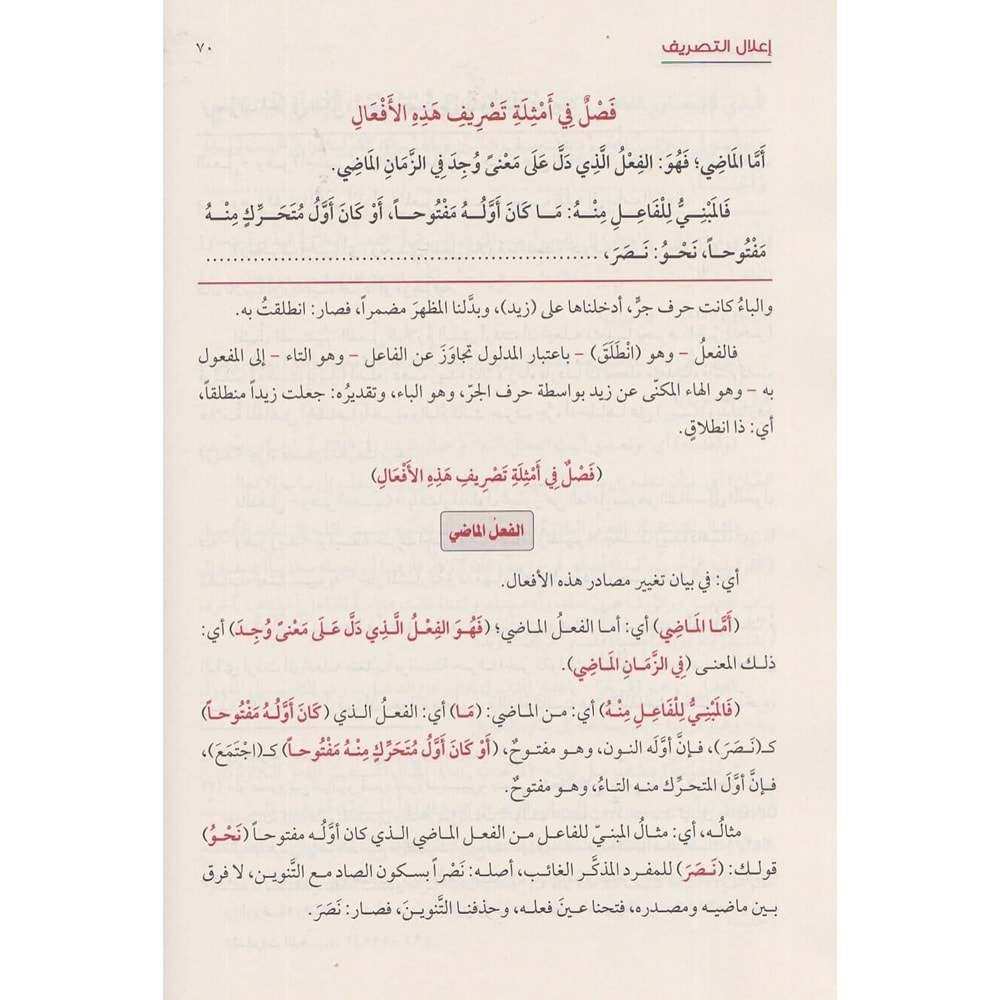 إعلال التصريف
٧٠
فَصْلٌ فِي أَمْثِلَةِ تَصْرِيفِ هَذِهِ الأَفْعَالِ
أَمَّا المَاضِي؛ فَهُوَ: الفِعْلُ الَّذِي دَلَّ عَلَى مَعْنىً وُجِدَ فِي الزَّمَانِ المَاضِي.
فَالمَبْنِيُّ لِلْفَاعِلِ مِنْهُ: مَا كَانَ أَوَّلُهُ مَفْتُوحاً، أَوْ كَانَ أَوَّلُ مُتَحَرِّكٍ مِنْهُ
مَفْتُوحاً، نَحْوُ: نَصَرَ، ......................................................
والباءُ كانت حرف جرٍّ، أدخلناها على (زيد)، وبدَّلنا المظهرَ مضمراً، فصار: انطلقتُ به.
فالفعلُ – وهو (انْطَلَقَ) – باعتبار المدلول تجاوَزَ عن الفاعل – وهو التاء – إلى المفعول
به – وهو الهاء المكنّى عن زيد بواسطة حرف الجرّ، وهو الباء، وتقديرُه: جعلت زيداً منطلقاً،
أي: ذا انطلاقٍ.
(فَصْلٌ فِي أَمْثِلَةِ تَصْرِيفِ هَذِهِ الأَفْعَالِ)
الفعلُ الماضي
أي: في بيان تغيير مصادر هذه الأفعال.
(أَمَّا المَاضِي) أي: أما الفعلُ الماضي؛ (فَهُوَ الفِعْلُ الَّذِي دَلَّ عَلَى مَعْنىً وُجِدَ) أي:
ذلك المعنى (فِي الزَّمَانِ المَاضِي).
(فَالمَبْنِيُّ لِلْفَاعِلِ مِنْهُ) أي: من الماضي: (مَا) أي: الفعلُ الذي (كَانَ أَوَّلُهُ مَفْتُوحاً)
كـ(نَصَرَ)، فإنَّ أوَّلَه النون، وهو مفتوحٌ، (أَوْ كَانَ أَوَّلُ مُتَحَرِّكٍ مِنْهُ مَفْتُوحاً) كـ(اجْتَمَعَ)،
فإنَّ أوَّلَ المتحرِّك منه التاءُ، وهو مفتوحٌ.
مثالُه، أي: مثالُ المبنيّ للفاعل من الفعل الماضي الذي كان أوَّلُه مفتوحاً (نَحْوُ)
قولك: (نَصَرَ) للمفرد المذكَّر الغائب، أصله: نَصْراً بسكون الصاد مع التَّنوين، لا فرق
بين ماضيه ومصدره، فتحنا عينَ فعله، وحذفنا التَّنوينَ، فصار: نَصَرَ.